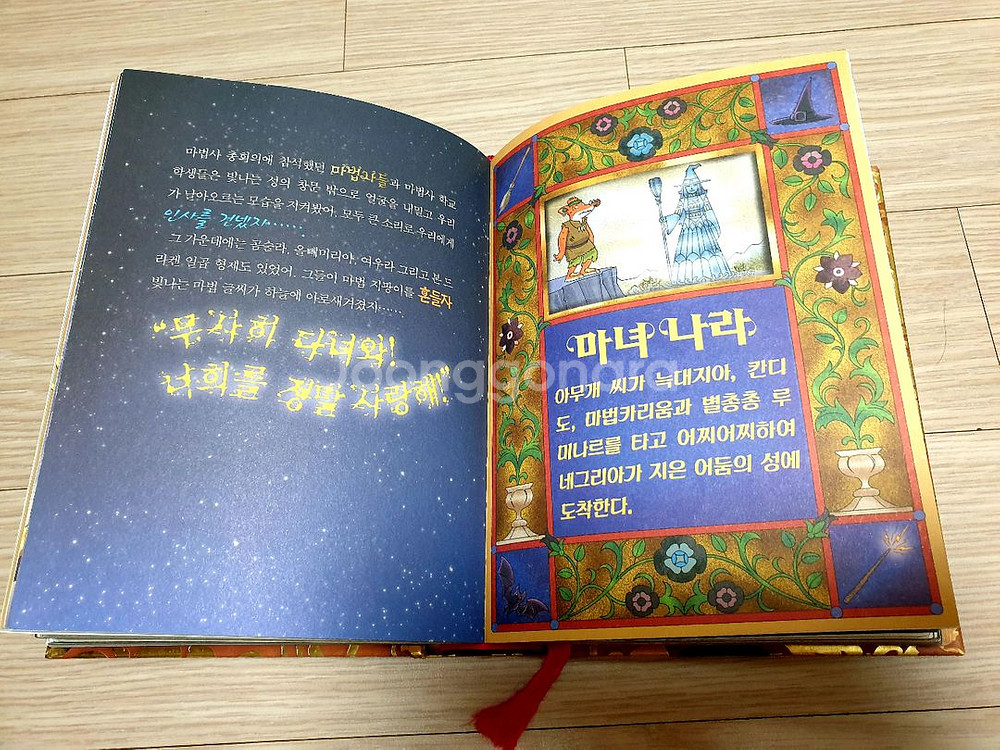 마법사 총회의에 참석했던 마법사들과 마법사 학교
학생들은 빛나는 성의 창문 밖으로 얼굴을 내밀고 우리
가 날아오르는 모습을 지켜봤어. 모두 큰 소리로 우리에게
인사를 건넸지……
그 가운데에는 곰승라, 올빼미리아, 여우라 그리고 본드
라켄 일곱 형제도 있었어. 그들이 마법 지팡이를 흔들자
빛나는 마법 글씨가 하늘에 아로새겨졌지……
“무사히 다녀와!
너희를 정말 사랑해!”
마녀 나라
아무개 씨가 늑대지아, 칸디
도, 마법카리움과 별총총 루
미나르를 타고 어찌어찌하여
네그리아가 지은 어둠의 성에
도착한다.
Joonggonara